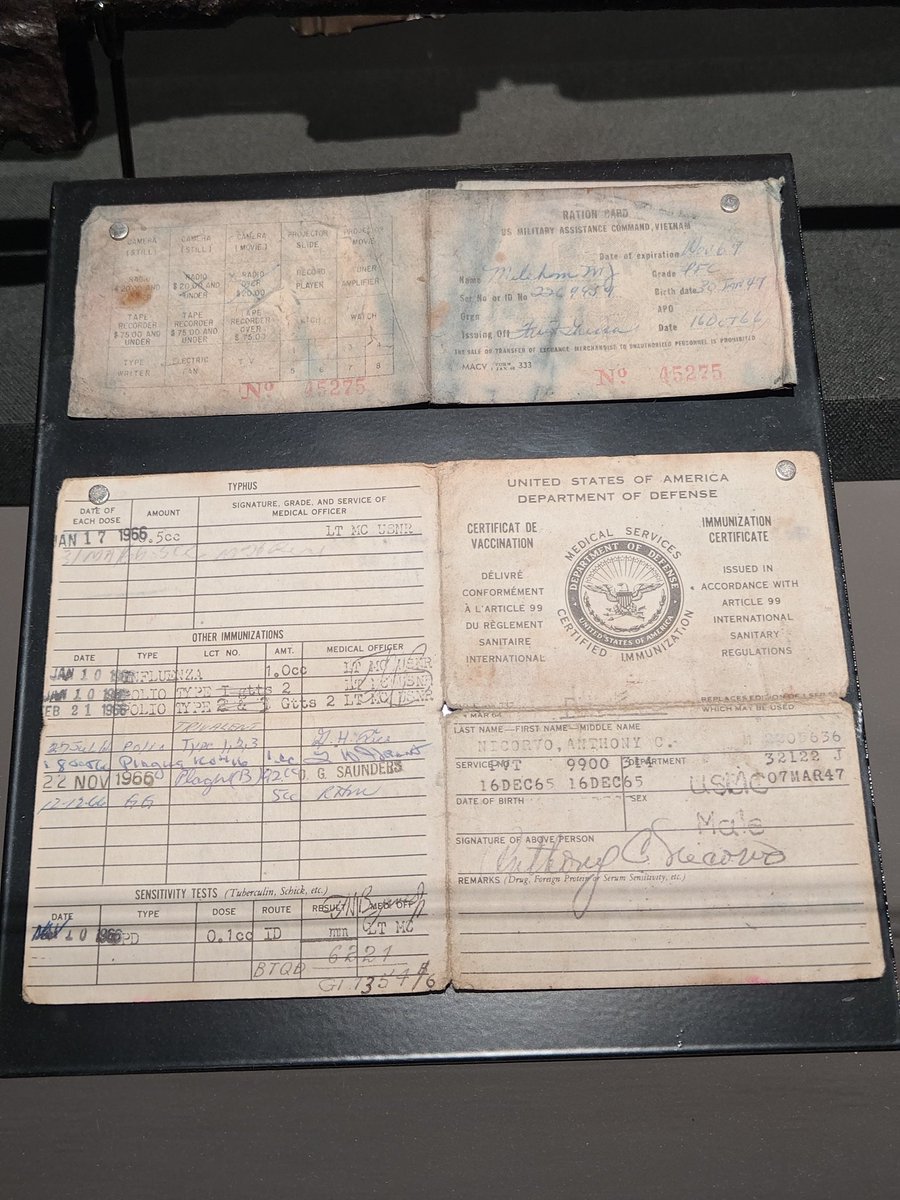 CAMERA (STILL) CAMERA (STILL) CAMERA (MOVIE) PROJECTOR SLIDE PROJECTOR MOVIE
RADIO $20.00 AND RADIO $20.00 AND UNDER RADIO OVER $20.00 RECORD PLAYER TUNER AMPLIFIER
TAPE RECORDER $75.00 AND UNDER TAPE RECORDER $75.00 AND UNDER TAPE RECORDER OVER $75.00 WATCH
TYPE WRITER ELECTRIC FAN T.V. 5 6 7 8
No 45275
RATION CARD
US MILITARY ASSISTANCE COMMAND, VIETNAM
Date of expiration
Name Grade PFC
Ser No or ID No Birth date 30 JAN 47
Orgn APO
Issuing Off Date 16 Oct 66
THE SALE OR TRANSFER OF EXCHANGE MERCHANDISE TO UNAUTHORIZED PERSONNEL IS PROHIBITED
MACV FORM 333
No 45275
TYPHUS
DATE OF EACH DOSE AMOUNT SIGNATURE, GRADE, AND SERVICE OF MEDICAL OFFICER
JAN 17 1966 .5cc LT MC USNR
OTHER IMMUNIZATIONS
DATE TYPE LCT NO. AMT. MEDICAL OFFICER
JAN 10 1966 INFLUENZA 1.0cc LT MC USNR
JAN 10 1966 POLIO TYPE 1 gtts 2 LT MC USNR
FEB 21 1966 POLIO TYPE 2 & Gtts 2 LT MC USNR
TRIVALENT
Polio Type 1,2,3
Plague
22 NOV 1966 Plague G. SAUNDERS
12-12-66 GG 5cc
SENSITIVITY TESTS (Tuberculin, Schick, etc.)
DATE TYPE DOSE ROUTE RESULT MED OFF
10 1966 PPD 0.1cc ID mm LT MC
BTQD 6221
UNITED STATES OF AMERICA
DEPARTMENT OF DEFENSE
CERTIFICAT DE VACCINATION
DÉLIVRÉ
CONFORMÉMENT
À L'ARTICLE 99
DU RÈGLEMENT
SANITAIRE
INTERNATIONAL
MEDICAL SERVICES
DEPARTMENT OF DEFENSE
UNITED STATES OF AMERICA
CERTIFIED IMMUNIZATION
IMMUNIZATION CERTIFICATE
ISSUED IN
ACCORDANCE WITH
ARTICLE 99
INTERNATIONAL
SANITARY
REGULATIONS
4 MAR 64
REPLACES EDITION OF
WHICH MAY BE USED.
LAST NAME—FIRST NAME—MIDDLE NAME
NICORVO, ANTHONY C.
SERVICE PVT 9900 314 DEPARTMENT 32122 J
16DEC65 16DEC65 USMC 07MAR47
DATE OF BIRTH SEX
Male
SIGNATURE OF ABOVE PERSON
Anthony C Nicorvo
REMARKS (Drug, Foreign Protein or Serum Sensitivity, etc.)